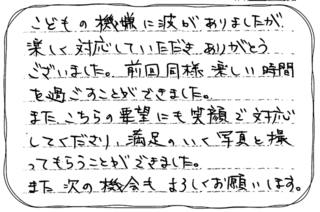 こどもの機嫌に波がありましたが
楽しく対応していただき ありがとう
ございました。前回同様 楽しい時間
を過ごすことができました。
また、こちらの要望にも笑顔で対応
してくださり、満足のいく写真を撮
ってもらうことができました。
また次の機会も よろしくお願いします。